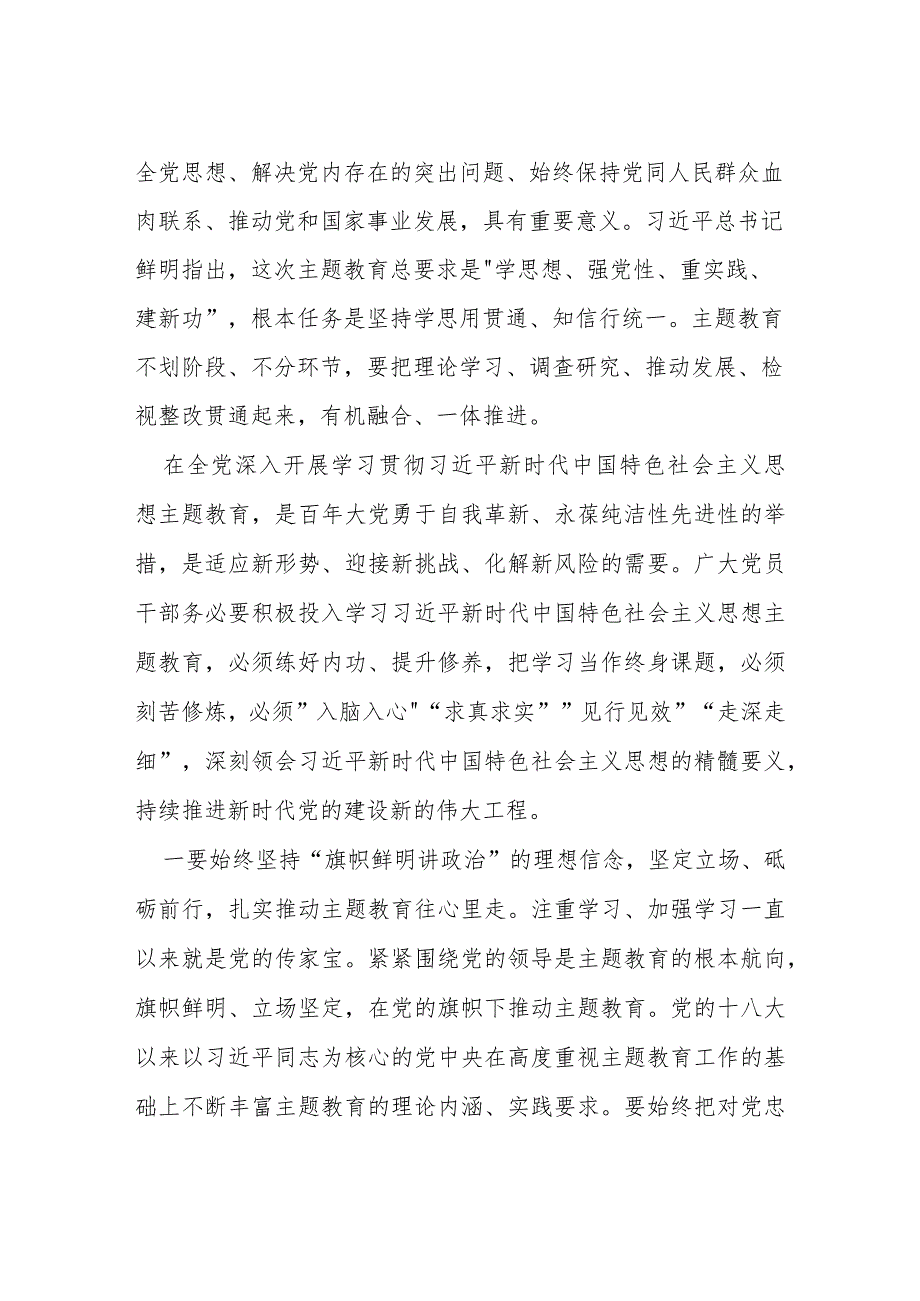 全党思想、解决党内存在的突出问题、始终保持党同人民群众血
肉联系、推动党和国家事业发展，具有重要意义。习近平总书记
鲜明指出，这次主题教育总要求是"学思想、强党性、重实践、
建新功”，根本任务是坚持学思用贯通、知信行统一。主题教育
不划阶段、不分环节，要把理论学习、调查研究、推动发展、检
视整改贯通起来，有机融合、一体推进。
在全党深入开展学习贯彻习近平新时代中国特色社会主义思
想主题教育，是百年大党勇于自我革新、永葆纯洁性先进性的举
措，是适应新形势、迎接新挑战、化解新风险的需要。广大党员
干部务必要积极投入学习习近平新时代中国特色社会主义思想主
题教育，必须练好内功、提升修养，把学习当作终身课题，必须
刻苦修炼，必须”入脑入心"“求真求实””见行见效”“走深走
细”，深刻领会习近平新时代中国特色社会主义思想的精髓要义，
持续推进新时代党的建设新的伟大工程。
一要始终坚持“旗帜鲜明讲政治”的理想信念，坚定立场、砥
砺前行，扎实推动主题教育往心里走。注重学习、加强学习一直
以来就是党的传家宝。紧紧围绕党的领导是主题教育的根本航向，
旗帜鲜明、立场坚定，在党的旗帜下推动主题教育。党的十八大
以来以习近平同志为核心的党中央在高度重视主题教育工作的基
础上不断丰富主题教育的理论内涵、实践要求。要始终把对党忠